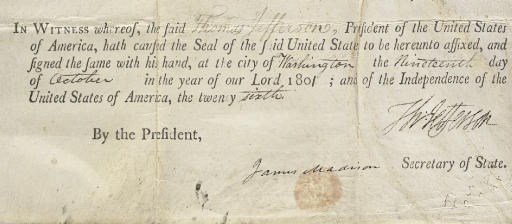 In Witness whereof, the said Thomas Jefferson, President of the United States
of America, hath caused the Seal of the said United State to be hereunto affixed, and
signed the same with his hand, at the city of Washington the Nineteenth day
of October in the year of our Lord, 1801; and of the Independence of the
United States of America, the twenty sixth.
Th: Jefferson
By the President,
James Madison Secretary of State.